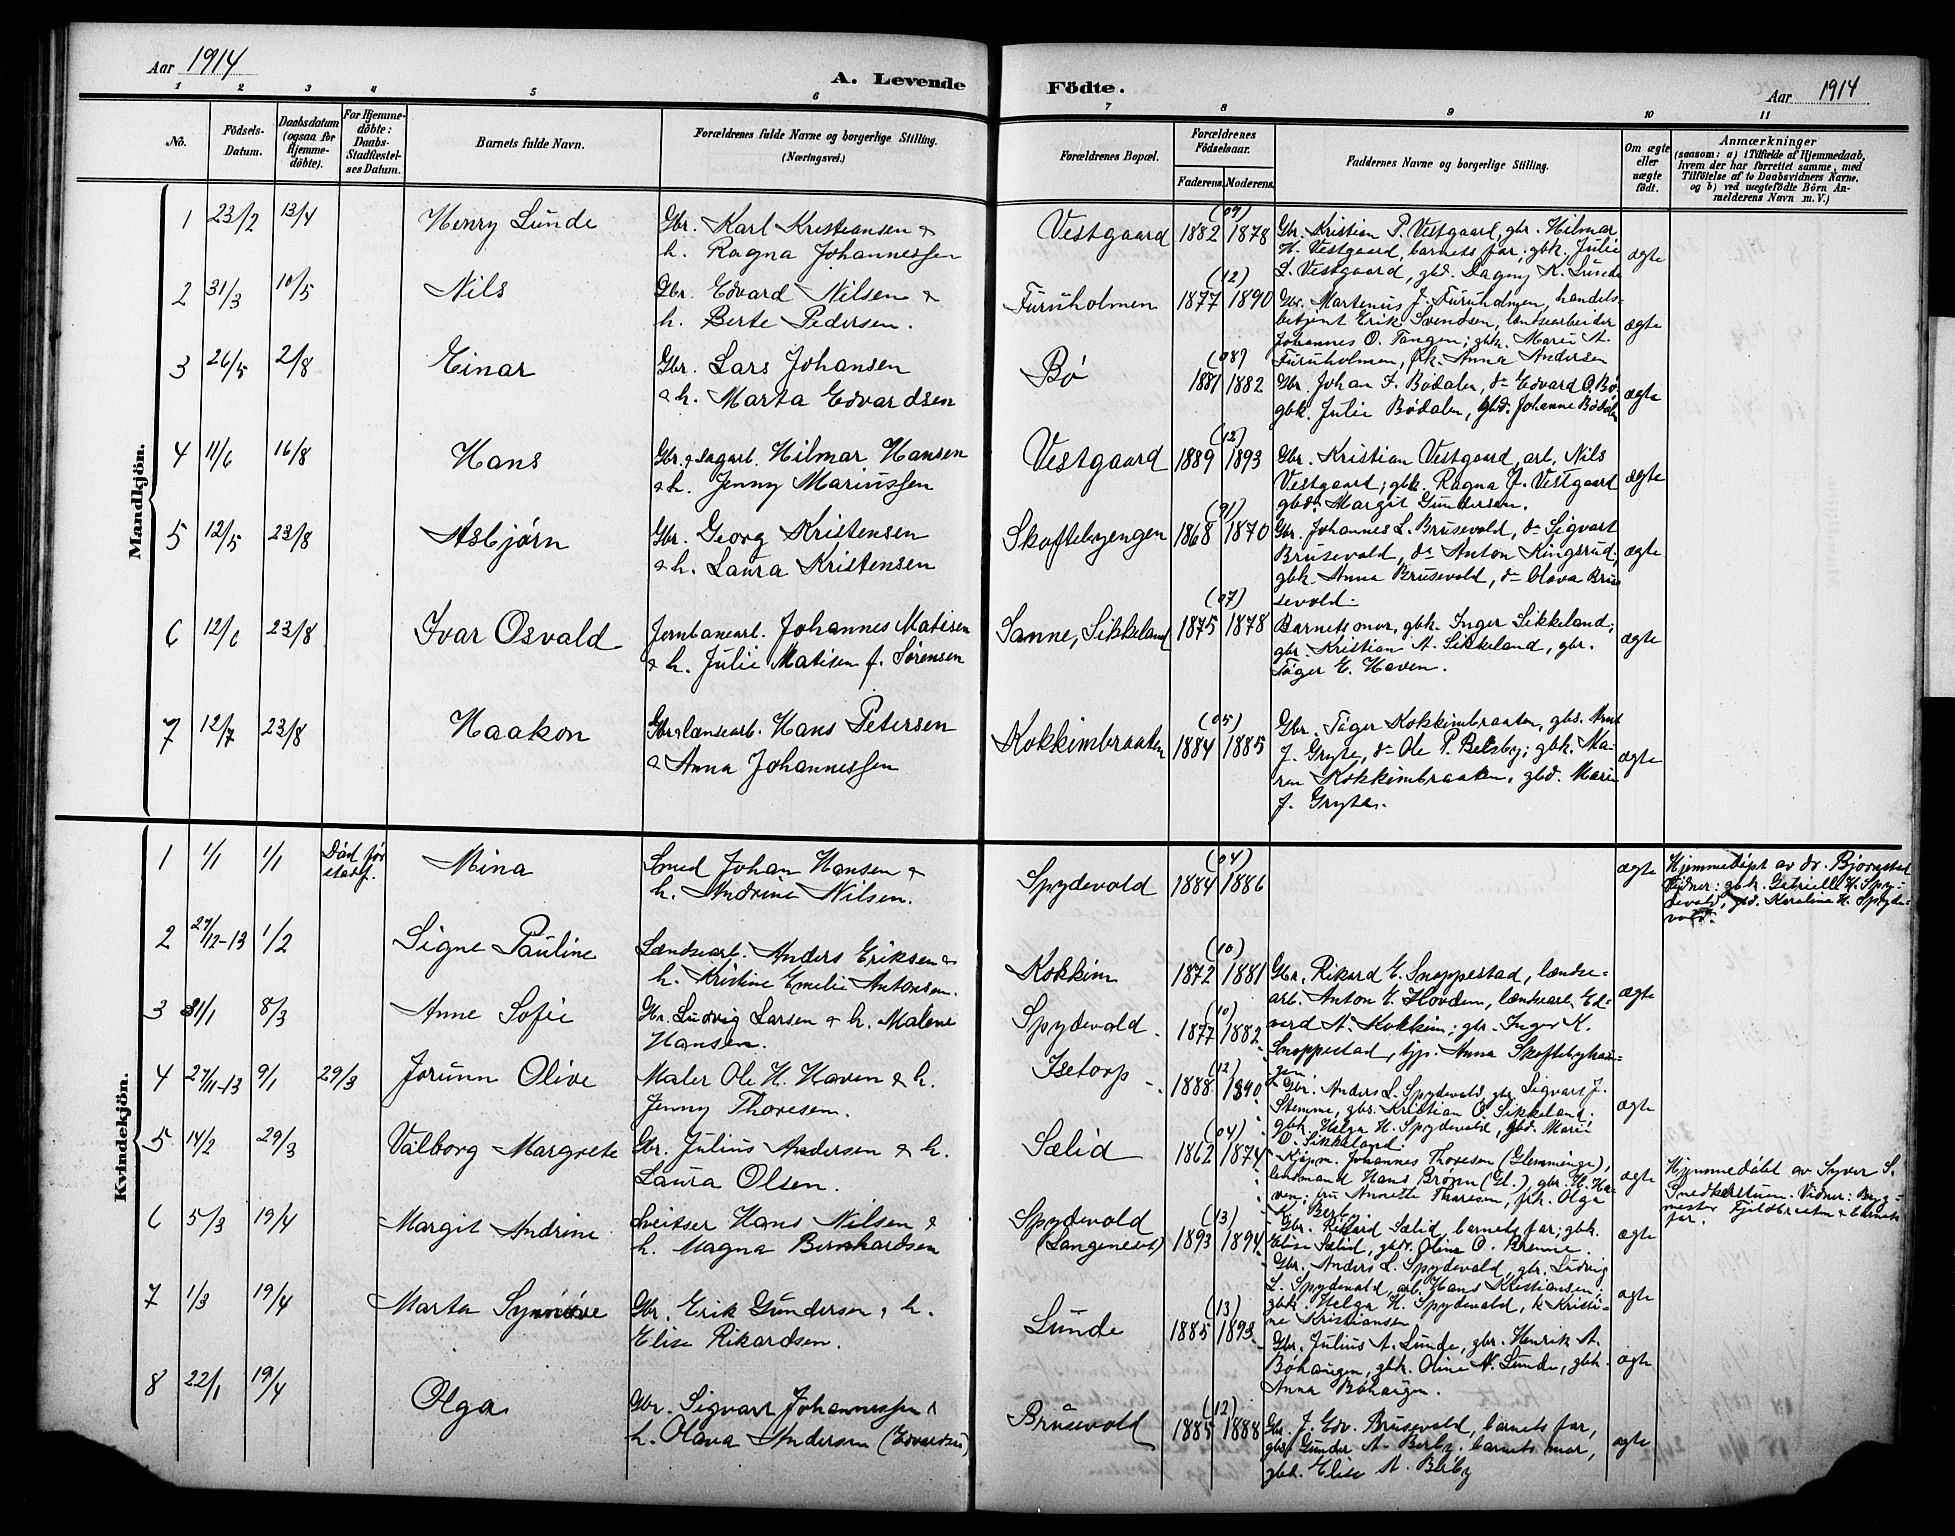 Aar 1914
A. Levende Födte.
Aar 1914
1 2 3 4 5 6 7 8 9 10 11
No.
Födsels-Datum.
Daabsdatum (ogsaa for Hjemme-döbte).
For Hjemme-döbte: Daabs-Stadfæstel-ses Datum.
Barnets fulde Navn.
Forældrenes fulde Navne og borgerlige Stilling. (Næringsvei.)
Forældrenes Bopæl.
Forældrenes Födselsaar.
Faderens. Moderens.
Faddernes Navne og borgerlige Stilling.
Om ægte eller uægte födt.
Anmærkninger
(saasom: a) i Tilfælde af Hjemmedaab, hvem der har forrettet samme, med Tilföielse af to Daabsvidners Navne, og b) ved uægtefödte Börn An-melderens Navn m. V.)
Mandkjön.
1 23/2 13/4 Henry Lunde
Gbr. Karl Kristiansen &
h. Ragna Johannessen
Vestgaard (07) 1882 1878
Gbr. Kristian P. Vestgaard, gbr. Hilmar
H. Vestgaard, barnets far; gbk. Julie
L. Vestgaard, gbd. Dagny K. Lunde
ægte
2 31/3 10/5 Nils
Gbr. Edvard Nilsen &
h. Berte Pedersen.
Furuholmen (12) 1877 1890
Gbr. Martenius J. Furuholmen, handels-
betjent Erik Svendsen, lændsearbeider
Johannes O. Tangen; gbk. Marie A.
Furuholmen, frk. Anna Andersen
ægte
3 26/5 2/8 Einar
Gbr. Lars Johansen
& h. Marta Edvardsen
Bø (08) 1881 1882
Gbr. Johan F. Bødalen, do Edvard O. Bø;
gbk. Julie Bødalen, gbd. Johanne Bødalen
ægte
4 11/6 16/8 Hans
Gbr. & dagarb. Hilmar Hansen
& h. Jenny Mariussen
Vestgaard (12) 1889 1893
Gbr. Kristian Vestgaard, arb. Nils
Vestgaard; gbk. Ragna J. Vestgaard
gbd. Margit Gundersen.
ægte
5 12/5 23/8 Asbjørn
Gbr. Georg Kristensen
& h. Laura Kristensen
Skoftebyengen (91) 1868 1870
Gbr. Johannes L. Brusevold, do Sigvart
Brusevold, do Anton Kingsrud;
gbk. Anna Brusevold, do Olava Bru
sevold.
ægte
6 12/6 23/8 Ivar Osvald
Jernbanearb. Johannes Matisen
& h. Julie Matisen f. Sørensen
Sanne, Sikkeland (07) 1875 1878
Barnets mor, gbk. Inger Sikkeland;
gbr. Kristian A. Sikkeland, gbr.
Tøger E. Haven.
ægte
7 12/7 23/8 Haakon
Gbr. & lænsearb. Hans Petersen
& Anna Johannessen
Kokkimbraaten (05) 1884 1885
Gbr. Tøger Kokkimbraaten, gbs. Arnt
J. Gryte, do Ole P. Belsby; gbk. Ma-
ren Kokkimbraaten, gbd. Marie
J. Gryte.
ægte
Kvindekjön.
1 1/1 1/1 Død før stadf. Mina
Smed Johan Hansen &
h. Andrine Nilsen.
Spydevold (04) 1884 1886
ægte
Hjemmedøpt av dr. Bjørnstad
Vidner: gbk. Gabrielle H. Spy-
devold, gbd. Karoline H. Spyde-
vold.
2 27/12-13 1/2 Signe Pauline
Lændsearb. Anders Eriksen &
h. Kristine Emelie Antonsen.
Kokkim (10) 1872 1881
Gbr. Rikard E. Snoppestad, lændse-
arb. Anton E. Hovden, lændsearb. Ed-
vard A. Kokkim; gbr. Inger K.
Snoppestad, tjp. Anna Skoftebyhau-
gen.
ægte
3 31/1 8/3 Anne Sofie
Gbr. Ludvig Larsen & h. Malene
Hansen.
Spydevold (10) 1877 1882
Gbr. Anders L. Spydevold, gbs. Sigvart J.
Stemme, gbs. Kristian O. Sikkeland;
gbk. Helga H. Spydevold, gbd. Marie
O. Sikkeland.
ægte
4 27/11-13 9/1 29/3 Jorunn Olive
Maler Ole H. Haven & h.
Jenny Thoresen.
Isetorp (12) 1888 1890
Kjøpm. Johannes Thoresen (Glemminge),
landmand Hans Brøyn (Gl.), gbr. H. Ha-
ven; fru Annette Thoresen, frk. Olga
K. Berby
ægte
Hjemmedøbt av Syver S.
Snedkerstuen. Vidner: Byg-
mester Fjeldbraaten & barnets
far.
5 14/2 29/3 Valborg Margrete
Gbr. Julius Andersen & h.
Laura Olsen.
Sælid (04) 1862 1874
Gbr. Rikard Sælid, barnets far; gbk.
Elise Sælid, gbd. Oline O. Brenne.
ægte
6 5/3 19/4 Margit Andrine
Sveitser Hans Nilsen &
h. Magna Bernhardsen
Spydevold
(Langeneset) (13) 1893 1894
Gbr. Anders L. Spydevold, gbr. Ludvig
L. Spydevold, arb. Hans Kristiansen;
gbk. Helga H. Spydevold, k Kristi-
ne Kristiansen
ægte
7 1/3 19/4 Marta Synnøve
Gbr. Erik Gundersen & h.
Elise Rikardsen.
Lunde (13) 1885 1893
Gbr. Julius A. Lunde, gbr. Henrik A.
Bøhaugen, gbk. Oline A. Lunde, gbk.
Anna Bøhaugen.
ægte
8 22/1 19/4 Olga
Gbr. Sigvart Johannessen &
h. Olava Andersen (Edvardsen)
Brusevold (12) 1885 1888
Gbr. J. Edv. Brusevold, barnets far,
gbs. Gunder A. Berby. barnets mor,
gbd. Elise A. Berby
ægte